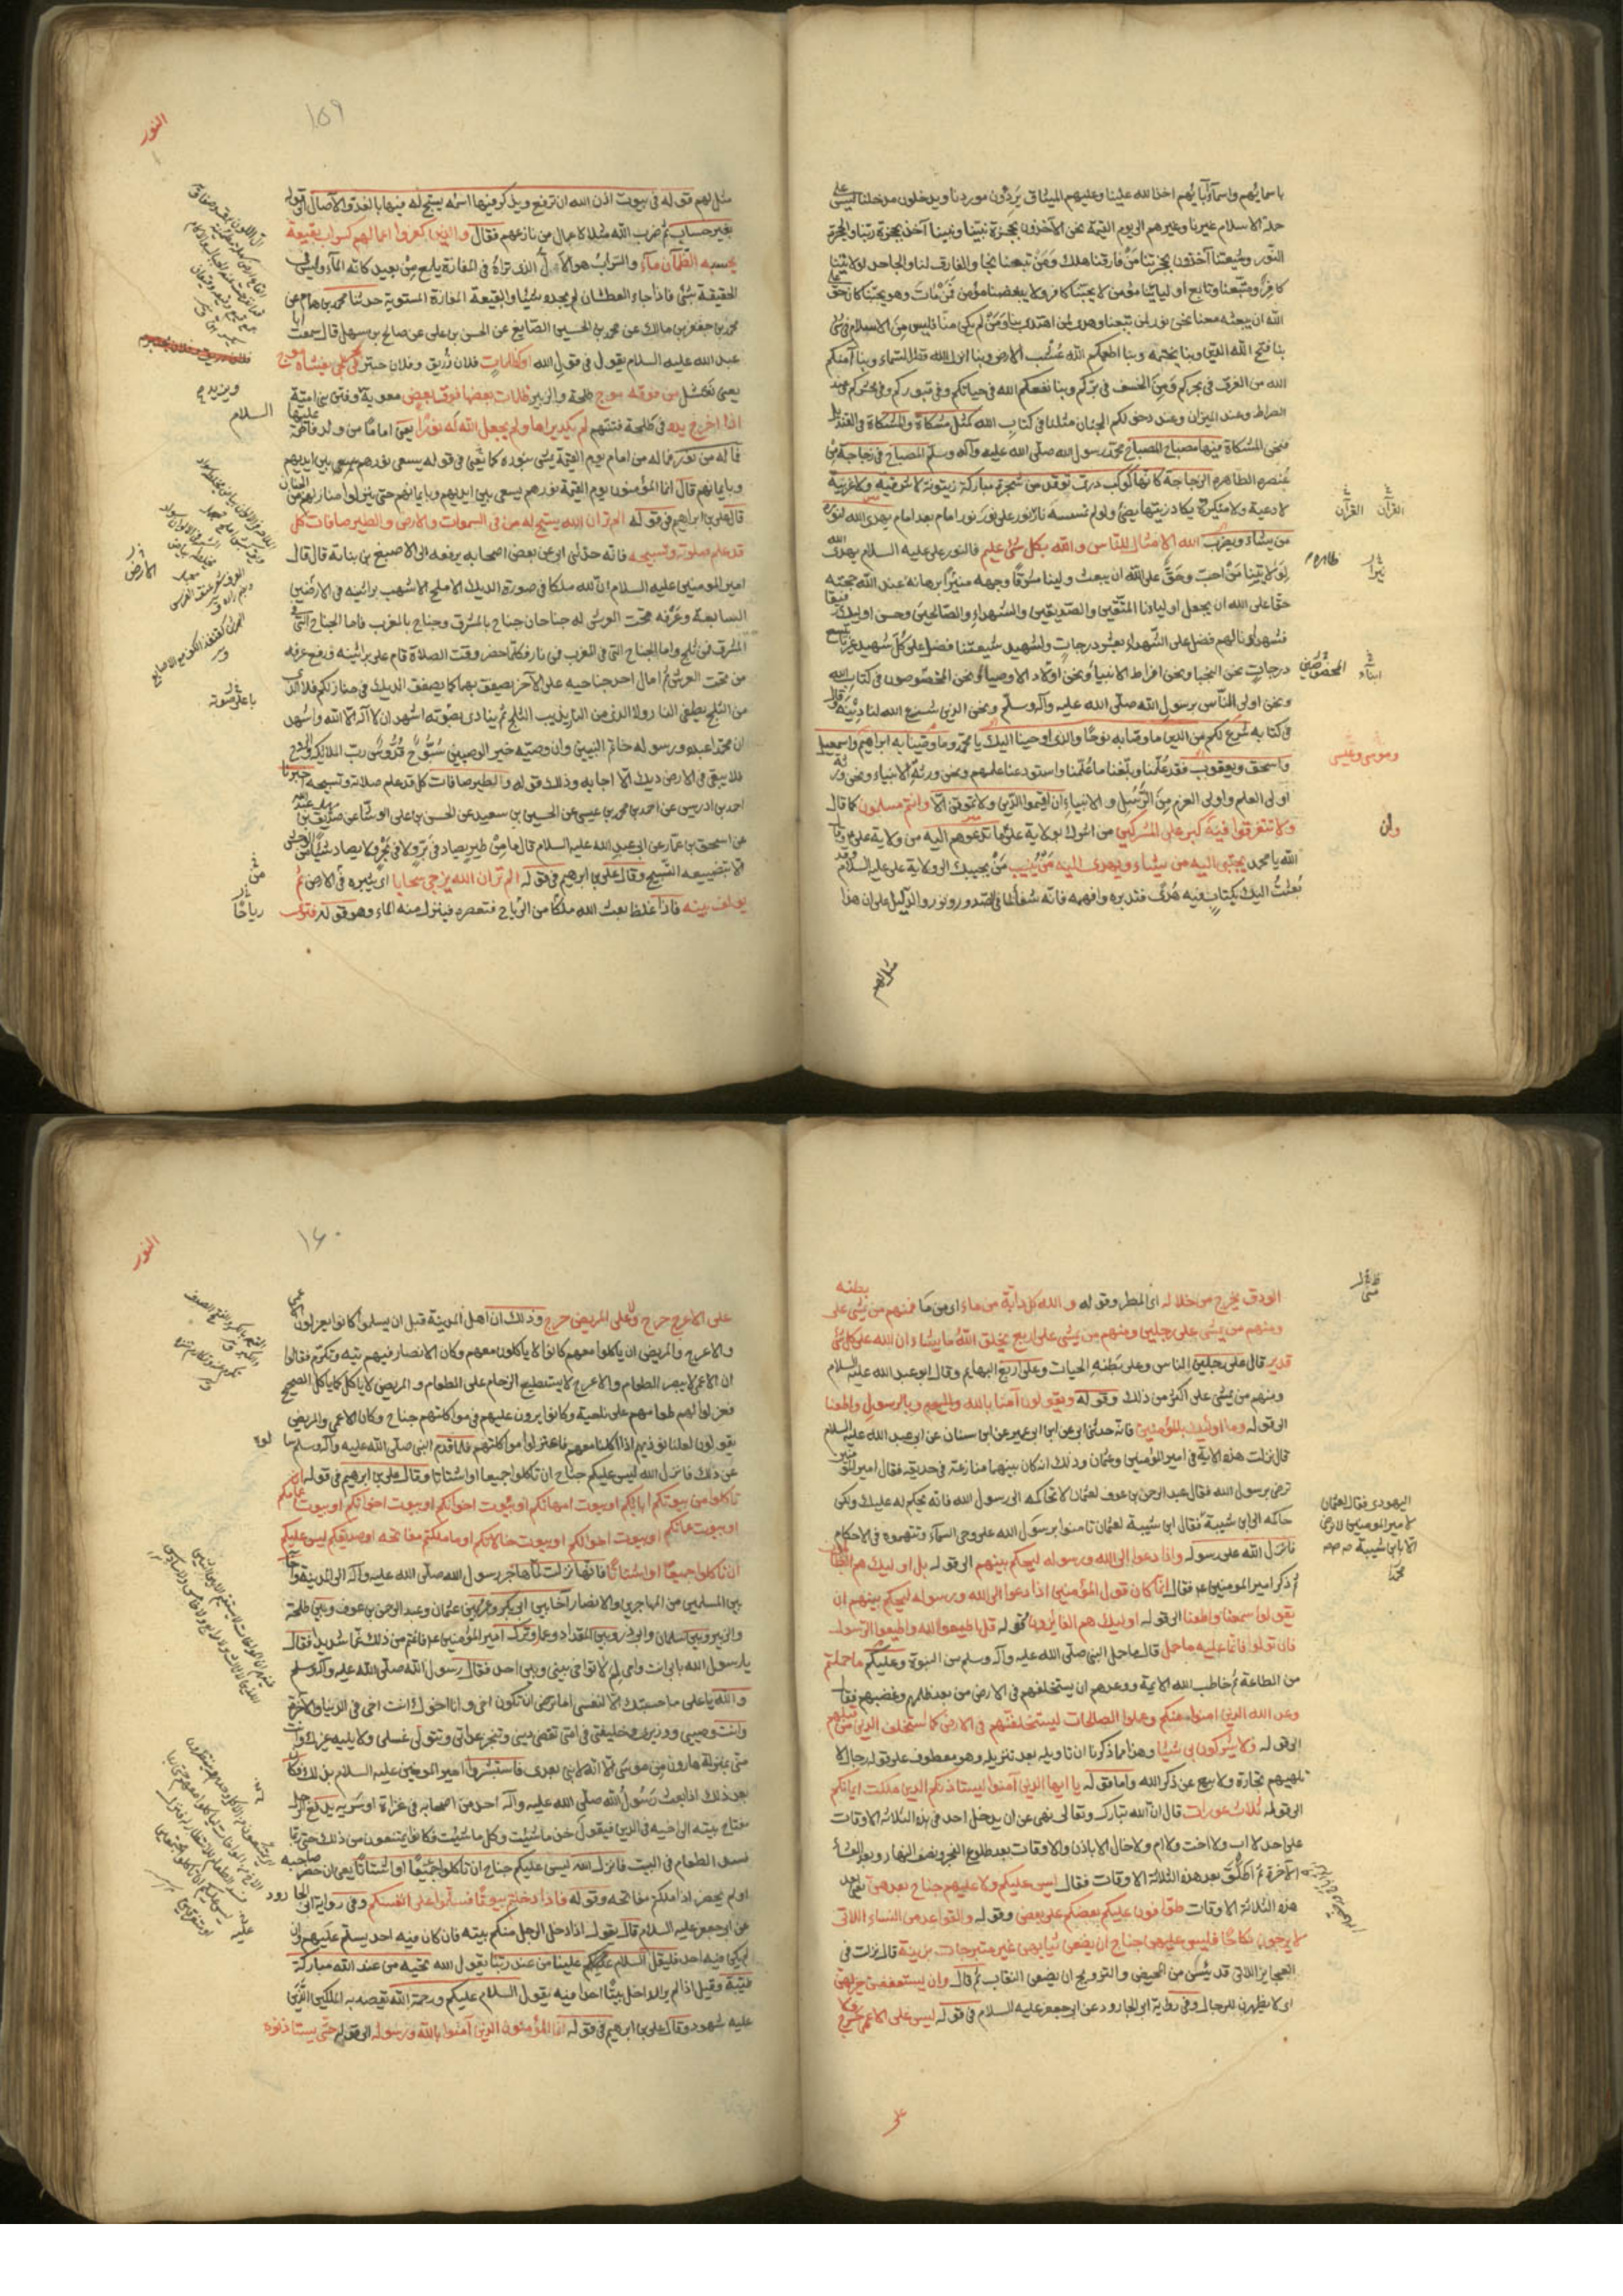 باسمائهم واسماء آبائهم اخذ الله علينا وعليهم الميثاق يردون موردنا ويدخلون مدخلنا ليس على
ملة الاسلام غيرنا وغيرهم الى يوم القيمة نحن الآخذون بحجزة نبينا ونبينا آخذ بحجزة ربنا والحجزة
النور وشيعتنا آخذون بحجزتنا من فارقنا هلك ومن تبعنا نجا والمفارق لنا والجاحد لولايتنا
كافر ومتبعنا وتابع اوليائنا مؤمن لا يحبنا كافر ولا يبغضنا مؤمن فمن مات وهو يحبنا كان حق على
الله ان يبعثه معنا نحن نور لمن تبعنا وهدى لمن اهتدى بنا ومن لم يكن منا فليس من الاسلام فى شئ
بنا فتح الله الدين وبنا يختمه وبنا اطعمكم الله عشب الارض وبنا انزل الله قطر السماء وبنا آمنكم
الله من الغرق فى بحركم ومن الخسف فى بركم وبنا نفعكم الله فى حياتكم وفى قبوركم وفى محشركم وعند
الصراط وعند الميزان وعند دخولكم الجنان مثلنا فى كتاب الله كمثل مشكاة والمشكاة فى القنديل
فنحن المشكاة فيها مصباح المصباح محمد رسول الله صلى الله عليه وآله وسلم المصباح فى زجاجة من
عنصره الطاهره الزجاجة كانها كوكب درى توقد من شجرة مباركة زيتونة لا شرقيه ولا غربية
لا دعية ولا منكرة يكاد زيتها يضئ ولو لم تمسسه نار نور على نور امام بعد امام يهدى الله لنوره
من يشاء ويضرب الله الامثال للناس والله بكل شئ عليم فالنور على عليه السلام يهدى الله
لولايتنا من احب وحق على الله ان يبعث ولينا مشرقا وجهه منيرا برهانه عند الله حجته
حقا على الله ان يجعل اوليائنا المتقين والصديقين والشهداء والصالحين وحسن اولئك رفيقا
فشهداؤنا لهم فضل على الشهداء بعشر درجات ولشهيد شيعتنا فضل على كل شهيد غيرنا بتسع
درجات نحن النجبا ونحن افراط الانبياء ونحن اولاد الاوصياء ونحن المخصوصون فى كتاب الله
ونحن اولى الناس برسول الله صلى الله عليه وآله وسلم ونحن الذين شرع الله لنا دينه فقال
فى كتابه شرع لكم من الدين ما وصى به نوحا والذى اوحينا اليك يا محمد وما وصينا به ابراهيم واسمعيل
واسحق ويعقوب فقد علمنا وبلغنا ما علمنا واستودعنا علمهم ونحن ورثة الانبياء ونحن ورثة
اولى العلم واولى العزم من الرسل والانبياء ان اقيموا الدين ولا تموتن الا وانتم مسلمون كما قال
ولا تتفرقوا فيه كبر على المشركين من اشرك بولاية على ما تدعوهم اليه من ولاية على
الله يا محمد يجتبى اليه من يشاء ويهدى اليه من ينيب من يجيبك الى ولاية على عليه السلام وقد
بعثت اليك بكتاب فيه هدى فتدبره وافهمه فانه شفاء لما فى الصدور ونور والدليل على ان هذا
القرآن القرآن
ظاهره
ابناء المخصوصين
وموسى وعيسى
وان
مثل لهم
١٥٩
النور
مثل لهم قوله فى بيوت اذن الله ان ترفع ويذكر فيها اسمه يسبح له فيها بالغدو والآصال الى قوله
بغير حساب ثم ضرب الله مثلا لاعمال من نازعهم فقال والذين كفروا اعمالهم كسراب بقيعة
يحسبه الظمآن ماء والسراب هو الآل الذى تراه فى المفازة يلمع من بعيد كانه الماء وليس فى
الحقيقة بشئ فاذا جاء العطشان لم يجده شيئا والقيعة المفازة المستوية حدثنا محمد بن همام عن
محمد بن جعفر بن مالك عن محمد بن الحسين الصايغ عن الحسن بن على عن صالح بن سهل قال سمعت ابا
عبد الله عليه السلام يقول فى قول الله او كظلمات فلان زريق وفلان حبتر فى بحر لجى يغشاه موج
يعنى نعثل من فوقه موج طلحة والزبير ظلمات بعضها فوق بعض معوية وفتن بنى امية
اذا اخرج يده فى ظلمة فتنتهم لم يكد يراها ولم يجعل الله له نورا يعنى اماما من ولد فاطمة عليها السلام
فما له من نور فما له من امام يوم القيمة يمشى بنوره كما يعنى فى قوله يسعى نورهم بين ايديهم
وبايمانهم قال انما المؤمنون يوم القيمة نورهم يسعى بين ايديهم وبايمانهم حتى ينزلوا منازلهم من الجنان
قال على بن ابراهيم فى قوله الم تر ان الله يسبح له من فى السموات والارض والطير صافات كل
قد علم صلوته وتسبيحه فانه حدثنى ابى عن بعض اصحابه يرفعه الى الاصبغ بن نباتة قال قال
امير المومنين عليه السلام ان لله ملكا فى صورة الديك الاملح الاشهب براثنه فى الارضين
السابعة وعرفه تحت العرش له جناحان جناح بالمشرق وجناح بالمغرب فاما الجناح التى فى
المشرق فمن ثلج واما الجناح التى فى المغرب فمن نار فكلما حضر وقت الصلاة قام على براثنه ورفع عرفه
من تحت العرش ثم امال احد جناحيه على الآخر يصفق بهما كما يصفق الديك فى منازلكم فلا الذى
من الثلج يطفى النار ولا الذى من النار يذيب الثلج ثم ينادى بصوته اشهد ان لا آله الا الله واشهد
ان محمدا عبده ورسوله خاتم النبيين وان وصيه خير الوصيين سبوح قدوس رب الملائكة والروح
فلا يبقى فى الارض ديك الا اجابه وذلك قوله والطير صافات كل قد علم صلاته وتسبيحه اخبرنا
احمد بن ادريس عن احمد بن محمد بن عيسى عن الحسين بن سعيد عن الحسن بن على الوشا عن صديق بن عبد الله
عن اسحق بن عمار عن ابى عبد الله عليه السلام قال ما من طير يصاد فى بر ولا فى بحر ولا يصاد شئ من الوحش
الا بتضييعه التسبيح وقال على بن ابراهيم فى قوله الم تر ان الله يزجى سحابا اى يثيره فى الارض ثم
يولف بينه فاذا غلظ بعث الله ملكا من الرياح فتعصره فينزل منه الماء وهو قوله فترى
باعلى صوته
رياحا
الودق يخرج من خلاله اى المطر وقوله والله خلق كل دابة من ماء اى من ما فمنهم من يمشى على بطنه
ومنهم من يمشى على رجلين ومنهم من يمشى على اربع يخلق الله ما يشاء ان الله على كل شئ
قدير قال على رجلين الناس وعلى بطنه الحيات وعلى اربع البهايم وقال ابو عبد الله عليه السلام
ومنهم من يمشى على اكثر من ذلك وقوله ويقولون آمنا بالله وبالرسول واطعنا
الى قوله وما اولئك بالمؤمنين فانه حدثنى ابى عن ابن ابى عمير عن ابن سنان عن ابى عبد الله عليه السلام
قال نزلت هذه الآية فى امير المؤمنين وعثمان وذلك انه كان بينهما منازعة فى حديقة فقال امير المؤمنين
ترضى برسول الله فقال عبد الرحمن بن عوف لعثمان لا تحاكمه الى رسول الله فانه يحكم له عليك ولكن
حاكمه الى ابن شيبة فقال ابن شيبة لعثمان تامنوا برسول الله على وحى السماء وتتهموه فى الاحكام
فانزل الله على رسوله واذا دعوا الى الله ورسوله ليحكم بينهم الى قوله بل اولئك هم الظالمون
ثم ذكر امير المومنين ع فقال انما كان قول المؤمنين اذا دعوا الى الله ورسوله ليحكم بينهم ان
يقولوا سمعنا واطعنا الى قوله اوليك هم الفائزون قوله قل اطيعوا الله واطيعوا الرسول
فان تولوا فانما عليه ما حمل قال ما حمل النبى صلى الله عليه وآله وسلم من النبوة وعليكم ما حملتم
من الطاعة ثم خاطب الله الائمة ووعدهم ان يستخلفهم فى الارض من بعد ظلمهم وغصبهم فقال
وعد الله الذين امنوا منكم وعملوا الصالحات ليستخلفنهم فى الارض كما استخلف الذين من قبلهم
الى قوله ولا يشركون بى شيئا وهذا مما ذكرنا ان تاويله بعد تنزيله وهو معطوف على قوله رجال لا
تلهيهم تجارة ولا بيع عن ذكر الله واما قوله يا ايها الذين آمنوا ليستاذنكم الذين ملكت ايمانكم
الى قوله ثلاث عورات قال ان الله تبارك وتعالى نهى عن ان يدخل احد فى هذه الثلاثة الاوقات
على احد لا اب ولا اخت ولا ام ولا خال الا باذن والاوقات بعد طلوع الفجر ونصف النهار وبعد العشاء
الآخرة ثم اطلق بعد هذه الثلاثة الاوقات فقال ليس عليكم ولا عليهم جناح بعدهن يعنى بعد
هذه الثلاثة الاوقات طوافون عليكم بعضكم على بعض وقوله والقواعد من النساء اللاتى
لا يرجون نكاحا فليس عليهن جناح ان يضعن ثيابهن غير متبرجات بزينة قال نزلت فى
العجايز اللاتى قد يئسن من المحيض والتزويج ان يضعن النقاب ثم قال وان يستعففن خير لهن
اى لا يظهرن للرجال وفى رواية ابى الجارود عن ابى جعفر عليه السلام فى قوله ليس على الاعمى حرج ولا
اليهودى فقال لعثمان
لامير المومنين لا ترضى
الا بابن شيبة
على
١٦٠
النور
على الاعرج حرج ولا على المريض حرج وذلك ان اهل المدينة قبل ان يسلموا كانوا يعزلون الاعمى
والاعرج والمريض ان ياكلوا معهم كانوا لا ياكلون معهم وكان الانصار فيهم تيه وتكرم فقالوا
ان الاعمى لا يبصر الطعام والاعرج لا يستطيع الزحام على الطعام والمريض لا ياكل كما ياكل الصحيح
فعزلوا لهم طعامهم على ناحية وكانوا يرون عليهم فى مواكلتهم جناح وكان الاعمى والمريض
يقولون لعلنا نوذيهم اذا اكلنا معهم فاعتزلوا مواكلتهم فلما قدم النبى صلى الله عليه وآله وسلم سالوه
عن ذلك فانزل الله ليس عليكم جناح ان تاكلوا جميعا او اشتاتا وقال على بن ابرهيم فى قوله ان
تاكلوا من بيوتكم او بيوت آبائكم او بيوت امهاتكم او بيوت اخوانكم او بيوت اخواتكم او بيوت اعمامكم
او بيوت عماتكم او بيوت اخوالكم او بيوت خالاتكم او ما ملكتم مفاتحه او صديقكم ليس عليكم جناح
ان تاكلوا جميعا او اشتاتا فانها نزلت لما هاجر رسول الله صلى الله عليه وآله الى المدينة وآخا
بين المسلمين من المهاجرين والانصار آخا بين ابى بكر وعمر وبين عثمان وعبد الرحمن بن عوف وبين طلحة
والزبير وبين سلمان وابى ذر وبين المقداد وعمار وترك امير المؤمنين ع فاغتم من ذلك غما شديدا فقال
يا رسول الله بابى انت وامى لم لا تواخى بينى وبين احد فقال رسول الله صلى الله عليه وآله وسلم
والله يا على ما حبستك الا لنفسى اما ترضى ان تكون اخى وانا اخوك انت اخى فى الدنيا والآخرة
وانت وصيى ووزيرى وخليفتى فى امتى تقضى دينى وتنجز عداتى وتتولى غسلى ولا يليه غيرك وانت
منى بمنزلة هارون من موسى الا انه لا نبى بعدى فاستبشر امير المومنين عليه السلام بذلك فكان
بعد ذلك اذا بعث رسول الله صلى الله عليه وآله احد من اصحابه فى غزاة او سرية يدفع الرجل
مفتاح بيته الى اخيه فى الدين فيقول خذ ما شئت وكل ما شئت فكانوا يمتنعون من ذلك حتى ربما
فسد الطعام فى البيت فانزل الله ليس عليكم جناح ان تاكلوا جميعا او اشتاتا يعنى ان حضر صاحبه
او لم يحضر اذا ملكتم مفاتحه وقوله فاذا دخلتم بيوتا فسلموا على انفسكم وفى رواية ابى الجارود
عن ابى جعفر عليه السلام قال يقول اذا دخل الرجل منكم بيته فان كان فيه احد يسلم عليهم وان
لم يكن فيه احد فليقل السلام علينا من عند ربنا يقول الله تحية من عند الله مباركة
طيبة وقيل اذا لم ير الداخل بيتا احدا فيه يقول السلام عليكم ورحمة الله يقصد به الملكين الذين
عليه شهود وقال على بن ابرهيم فى قوله انما المؤمنون الذين آمنوا بالله ورسوله الى قوله حتى يستاذنوه